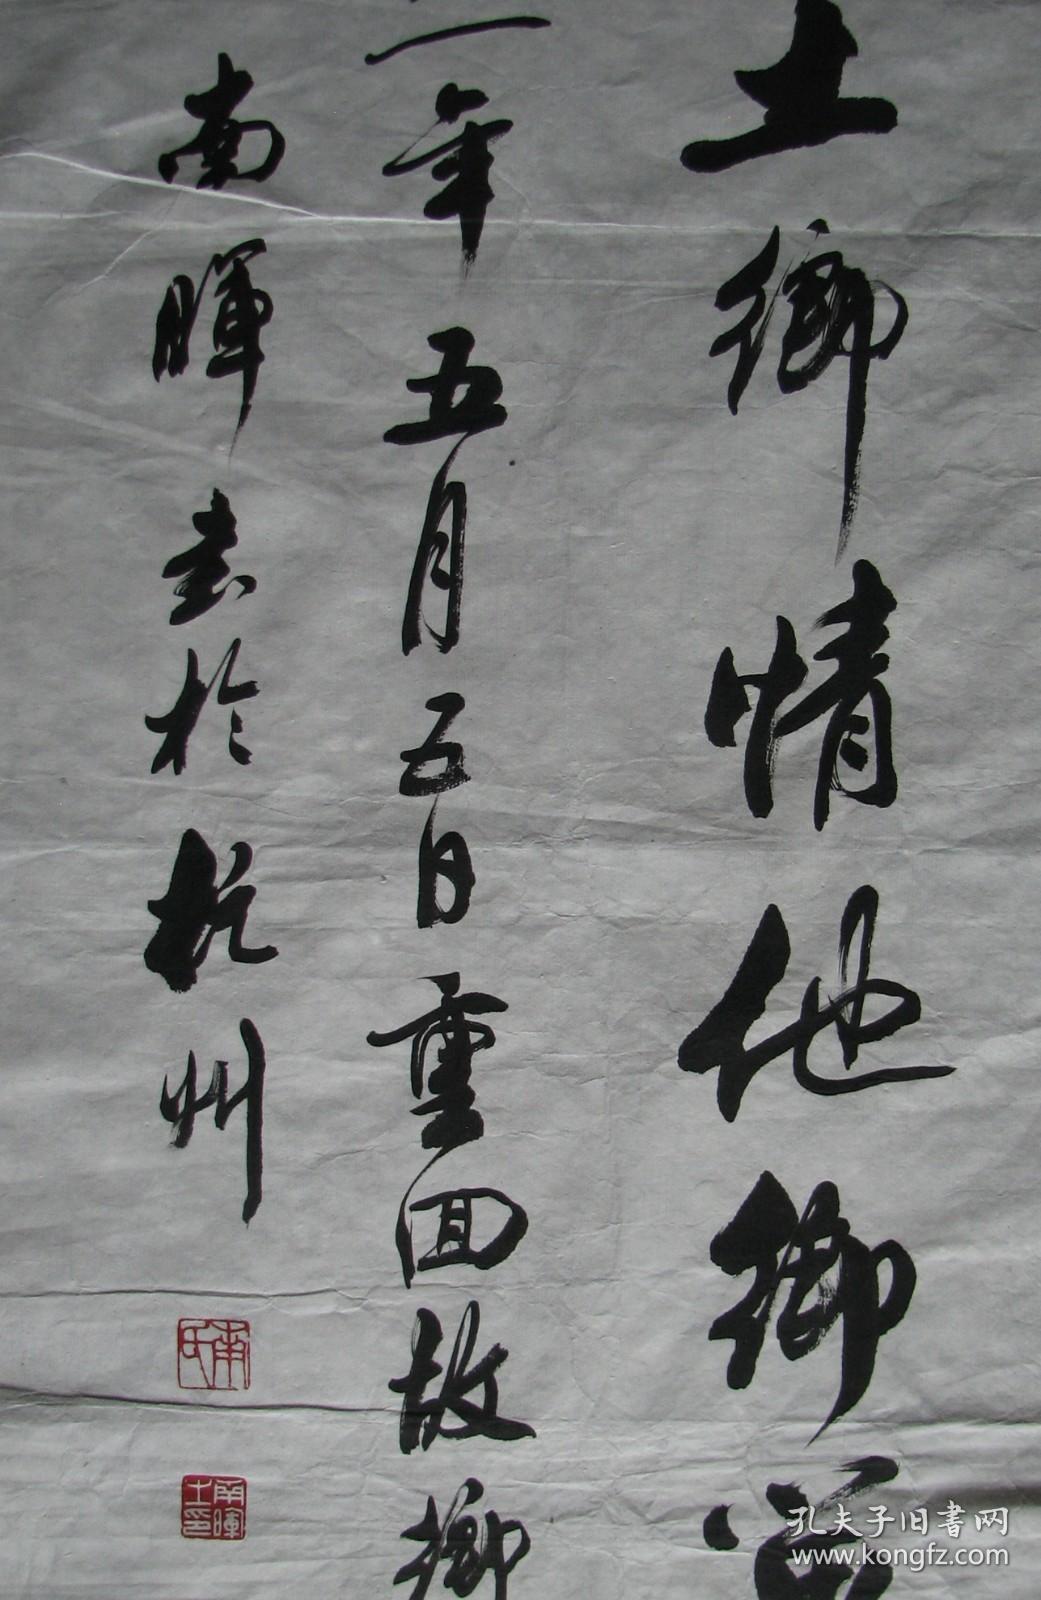 土鄉情他鄉
一年五月五日重回故鄉
南暉書於杭州
南氏
南暉
士印
孔夫子旧書网
www.kongfz.com